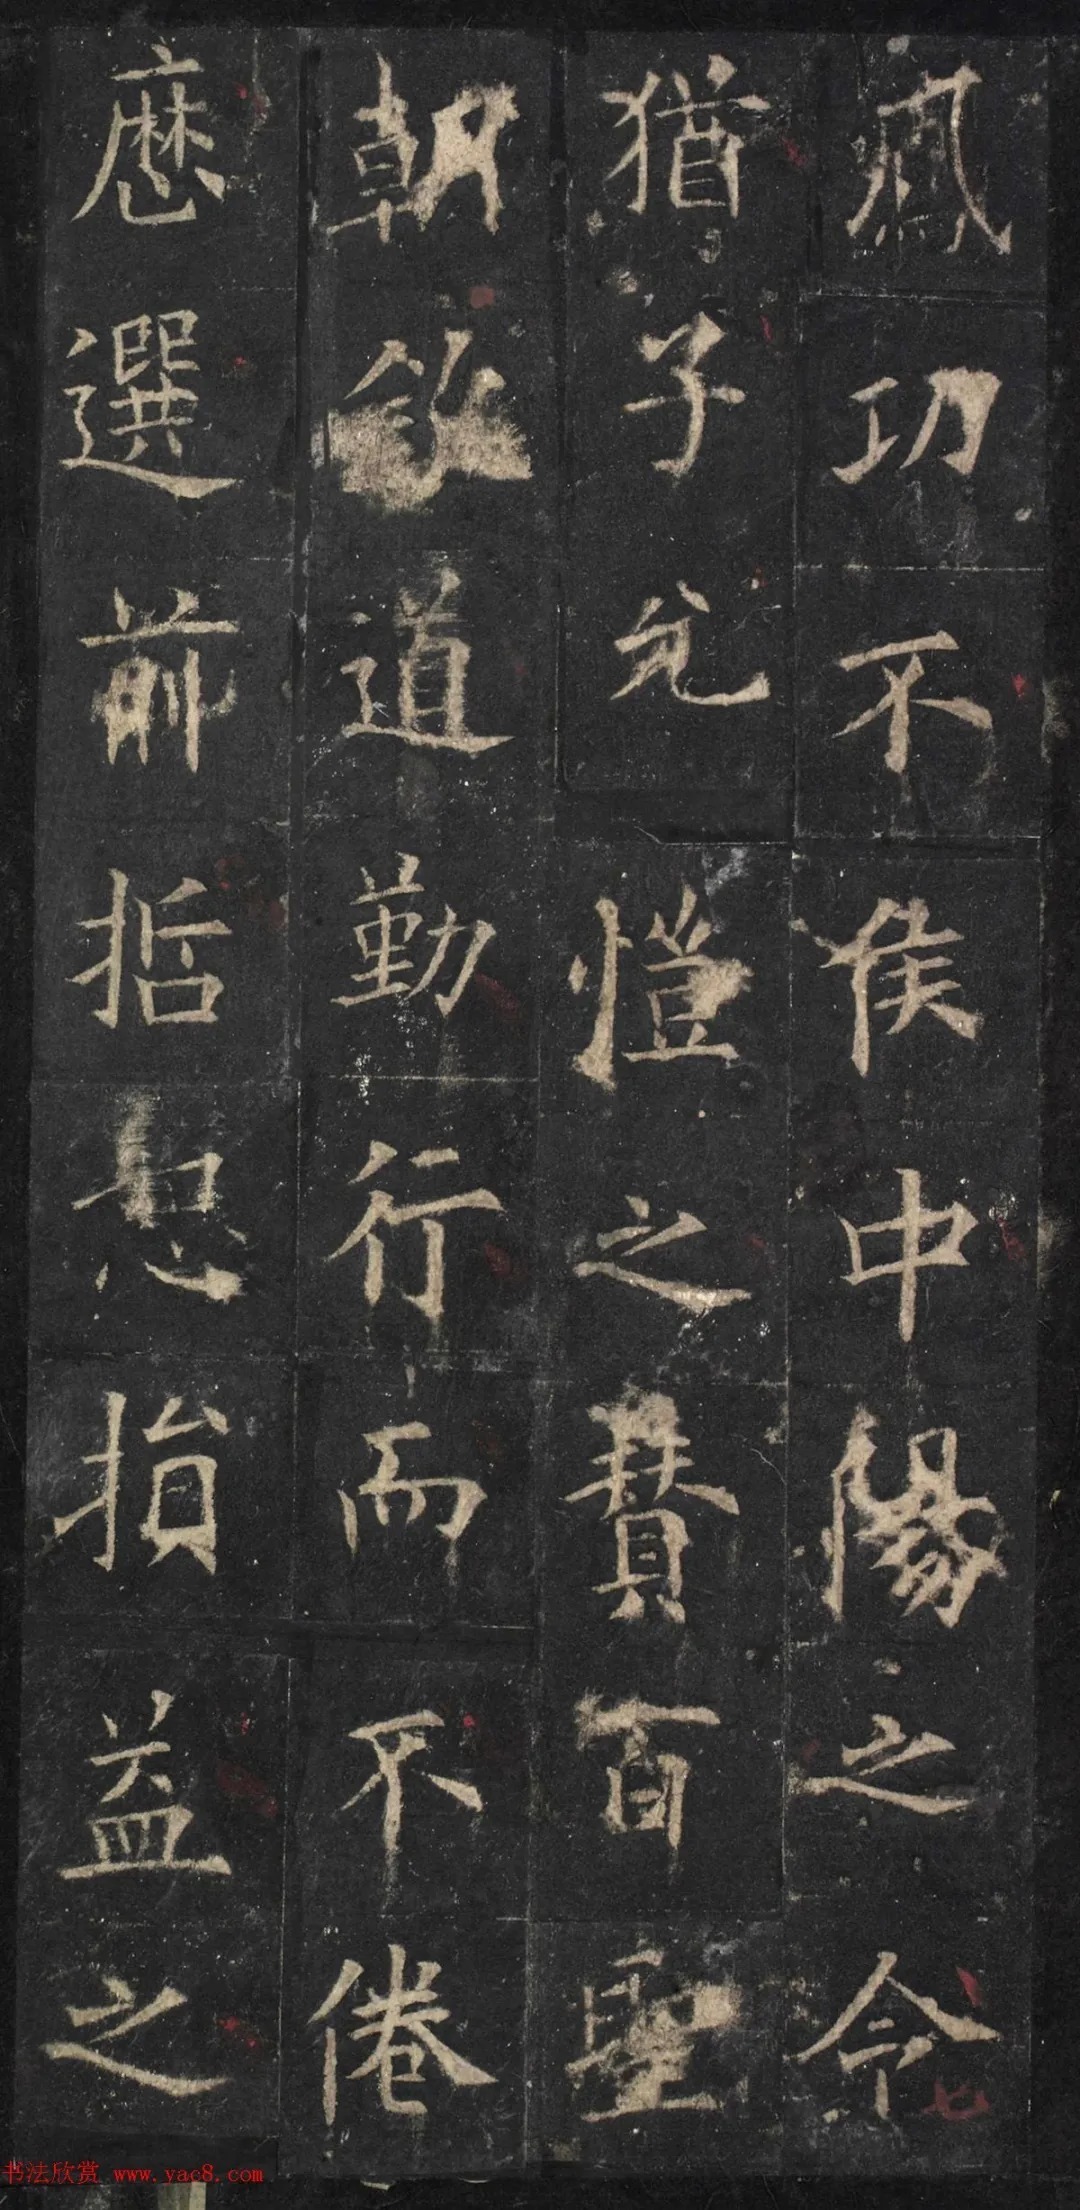 功不侯中陽之令
猶子允愷之贊百聖
朝道勤行而不倦
歷選前哲損益之
书法欣赏 www.yac8.com